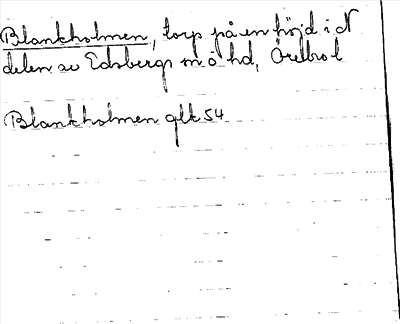 Blankholmen, torp på en höjd i N
delen av Edsbergs m o hd, Örebro l
Blankholmen glk 54